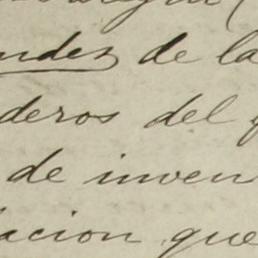 ndez de la
deros del
de inven
acion que